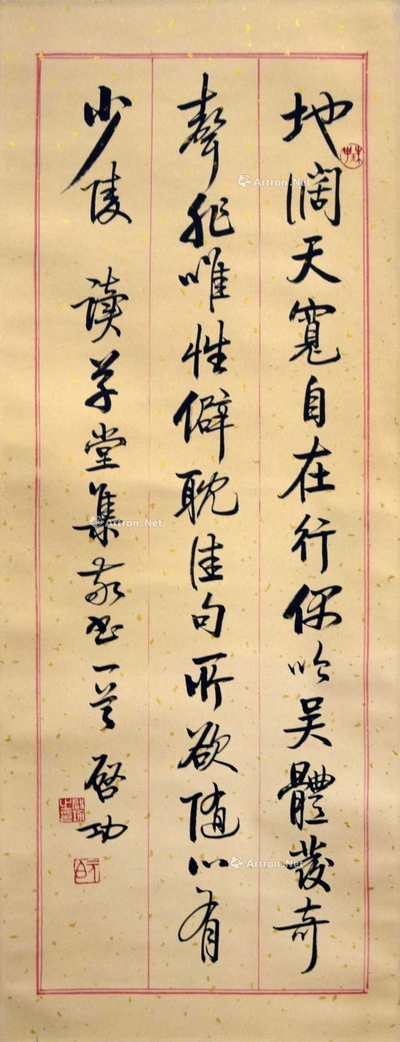 地阔天寬自在行偶吟吴體發奇
聲非唯性僻耽佳句所欲随心有
少陵 读草堂集敬书一首 启功
Artron.Net
Artron.Net
Artron.Net